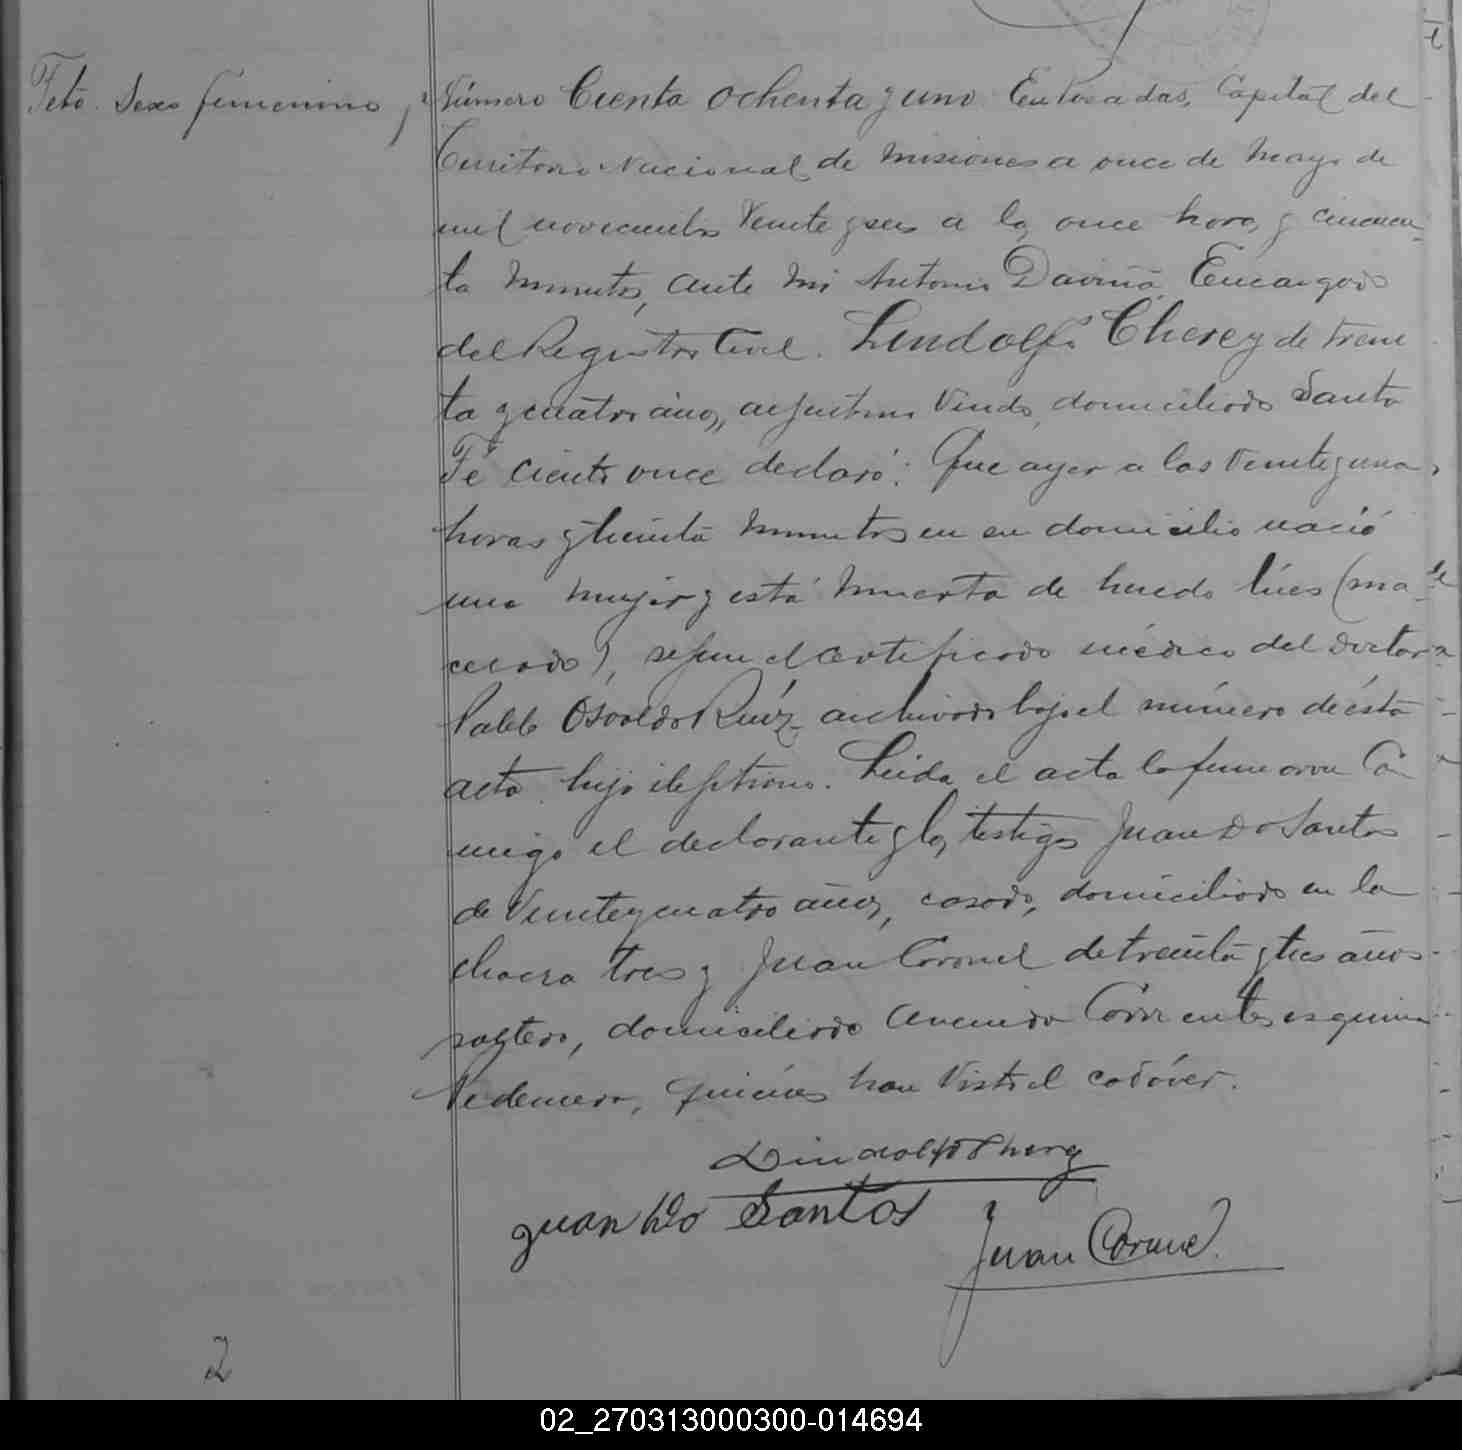 Feto. Sexo femenino
Número Ciento ochenta y uno En Posadas, Capital del
Territorio Nacional de Misiones a once de Mayo de
mil novecientos Veinte y seis a las once horas y cincuen-
ta minutos, ante mi Antonio Daviña Encargado
del Registro Civil. Lindolfo Cherey de trein
ta y cuatro años, argentino Viudo, domiciliado Santa
Fé ciento once declaró: Que ayer a las veinte y una
horas y treinta minutos en su domicilio nació
una mujer y está muerta de heredo lúes (ma-
cerado), segun el certificado médico del doctor
Pablo Osvaldo Ruíz archivado bajo el número de ésta
acta hijo ilegítimo. Leida el acta la firmaron Co
nmigo el declarante y los testigos Juan Do Santos
de Veinte y cuatro años, casado, domiciliado en la
chacra tres y Juan Coronel de treinta y tres años
soltero, domiciliado Avenida Corrientes esquina
Pedernera, quiénes han visto el cadáver.
Juan Do Santos
Juan Coronel
2
02_270313000300-014694